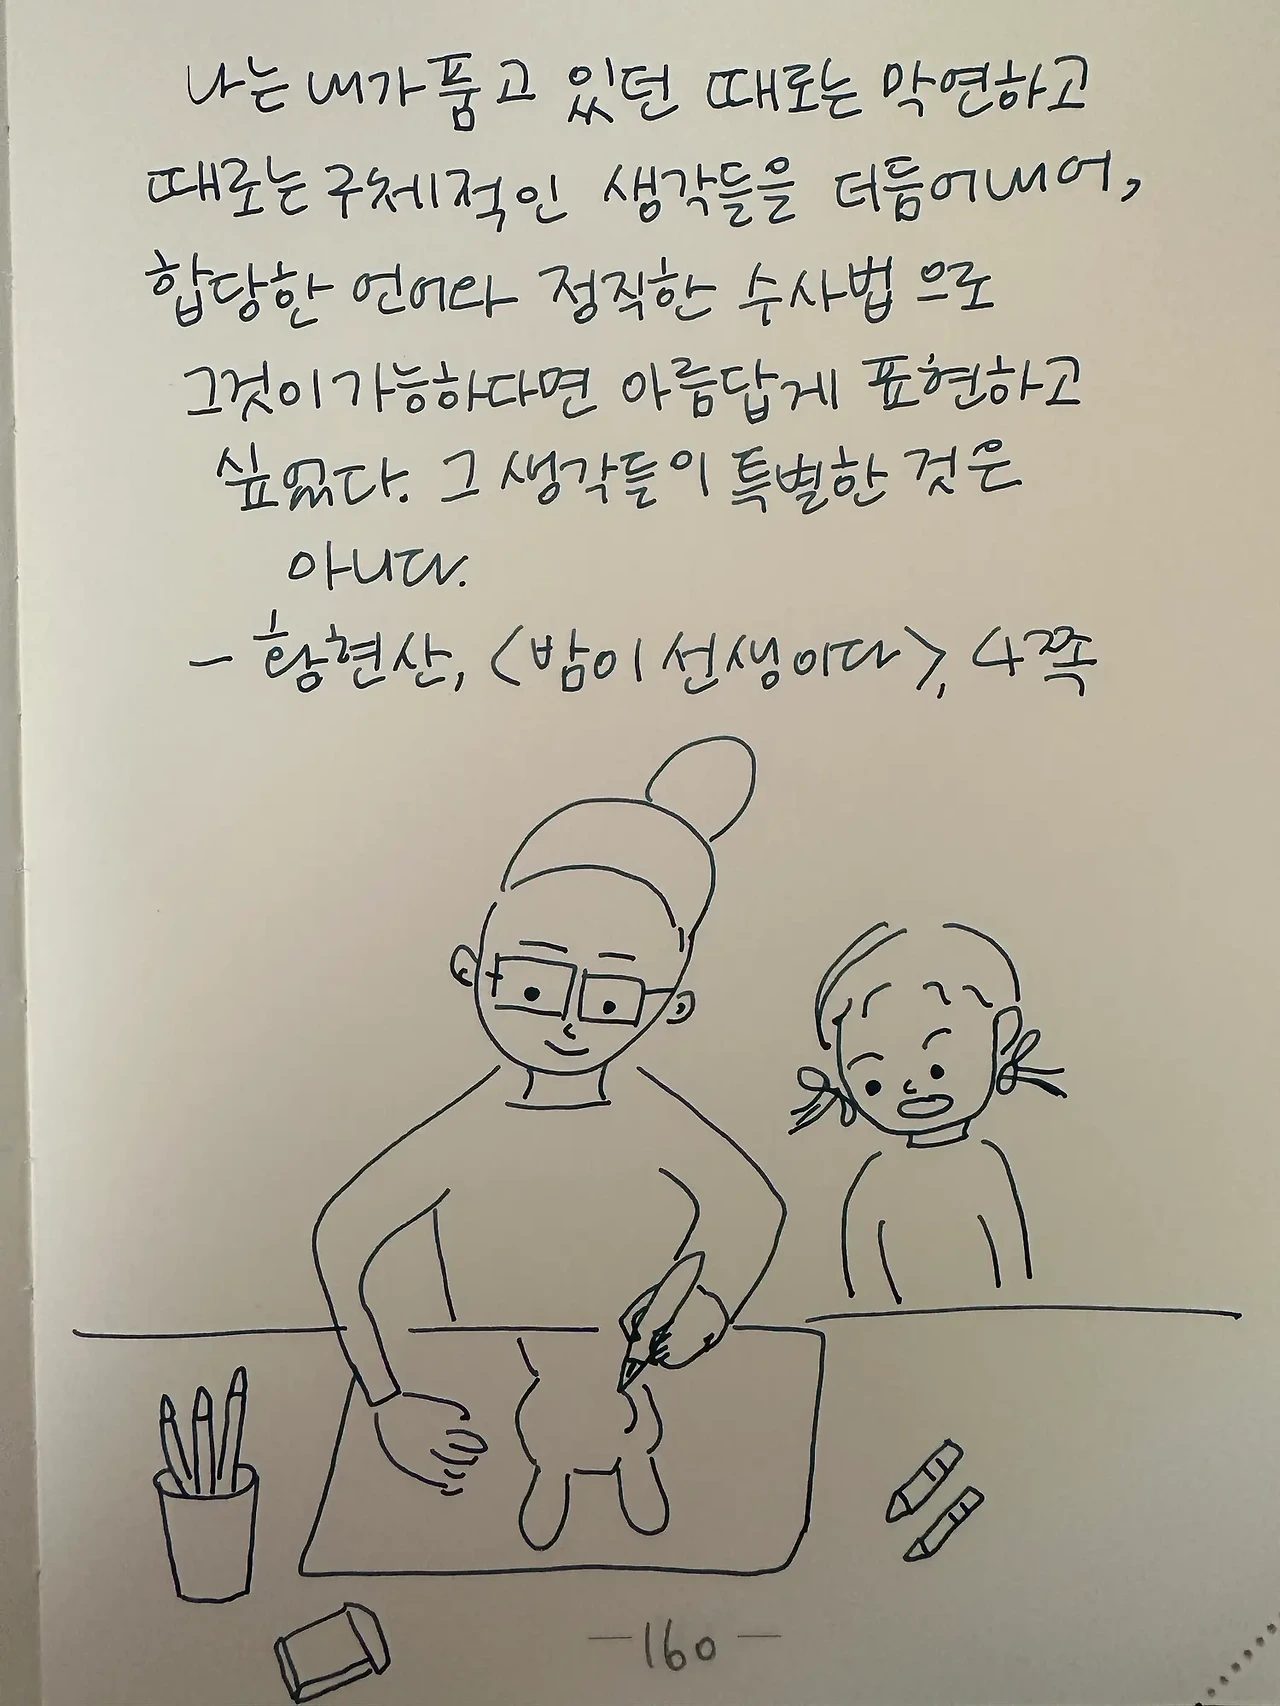 나는 내가 품고 있던 때로는 막연하고
때로는 구체적인 생각들을 더듬어내어,
합당한 언어와 정직한 수사법으로
그것이 가능하다면 아름답게 표현하고
싶었다. 그 생각들이 특별한 것은
아니다.
- 황현산, <밤이 선생이다>, 4쪽
-160-